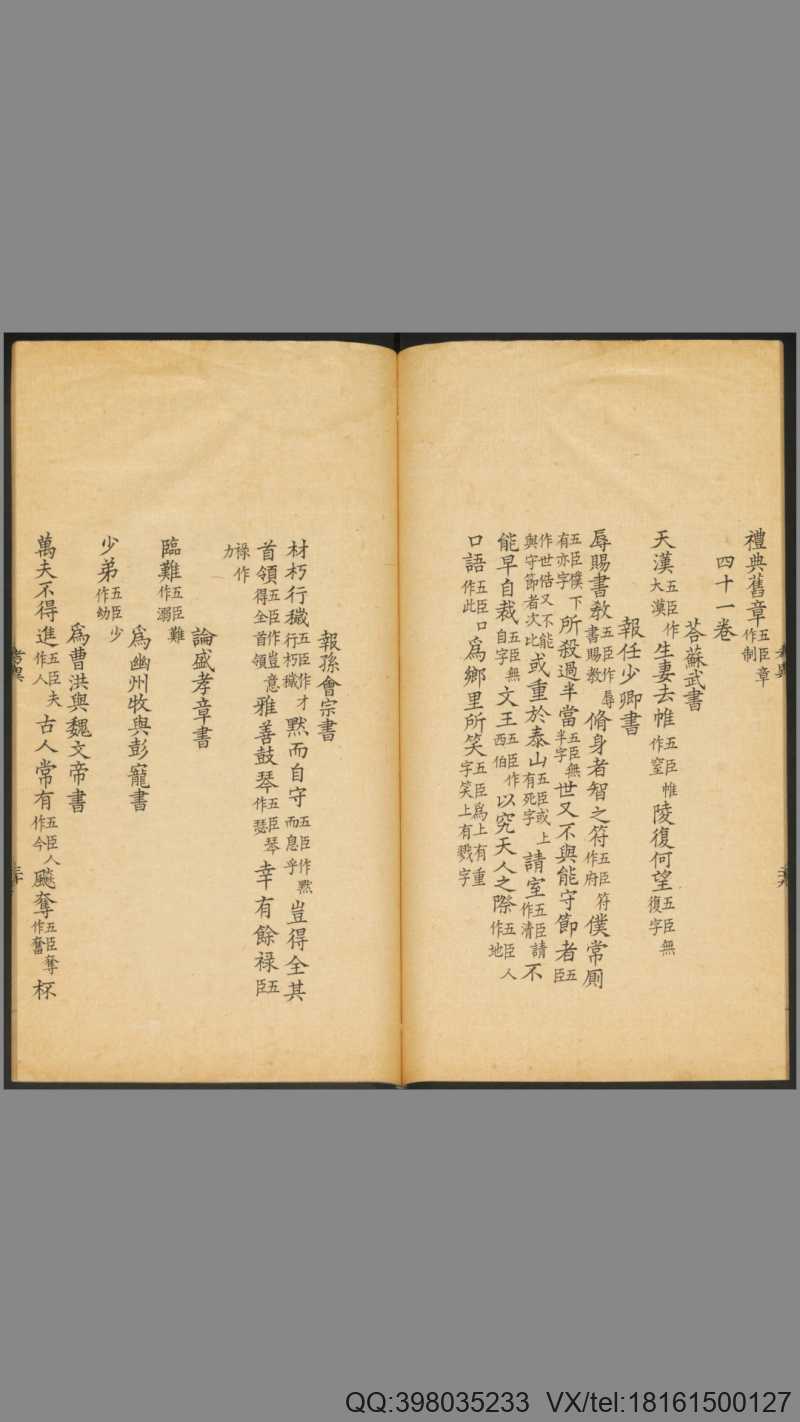 禮典舊章五臣章作制
四十一卷
荅蘇武書
天漢五臣作大漢生妻去帷五臣帷作室陵復何望五臣無復字
報任少卿書
辱賜書教五臣作辱書賜教脩身者智之符五臣符作府僕常厠
五臣僕下有亦字所殺過半當五臣無半字世又不與能守節者五臣
作世俗又不能與守節者次比或重於泰山五臣或上有死字請室五臣請作清不
能早自裁五臣無自字文王五臣作西伯以究天人之際五臣人作地
口語五臣口作此爲鄉里所笑五臣爲上有重字笑上有戮字
報孫會宗書
材朽行穢五臣作才行朽穢默而自守五臣作默而息乎豈得全其
首領五臣作豈意得全首領雅善鼓琴五臣琴作瑟幸有餘禄五臣
禄作力
論盛孝章書
臨難五臣難作溺
爲幽州牧與彭寵書
少弟五臣少作幼
爲曹洪與魏文帝書
萬夫不得進五臣夫作人古人常有五臣人作今飈奪五臣奪作奮杯
QQ:398035233 VX/tel:18161500127